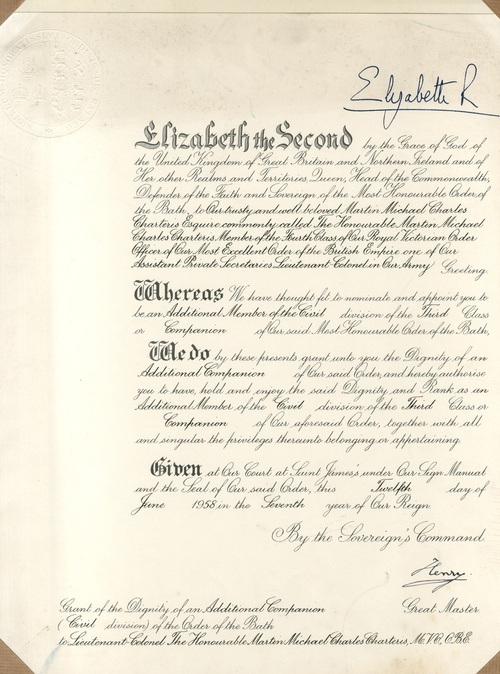 Elizabeth R
Elizabeth the Second by the Grace of God of
the United Kingdom of Great Britain and Northern Ireland and of
Her other Realms and Territories Queen, Head of the Commonwealth,
Defender of the Faith and Sovereign of the Most Honourable Order of
the Bath, to Our trusty and well beloved Martin Michael Charles
Charteris Esquire commonly called The Honourable Martin Michael
Charles Charteris Member of the Fourth Class of Our Royal Victorian Order
Officer of Our Most Excellent Order of the British Empire one of Our
Assistant Private Secretaries Lieutenant Colonel in Our Army Greeting
Whereas We have thought fit to nominate and appoint you to
be an Additional Member of the Civil division of the Third Class
or Companion of Our said Most Honourable Order of the Bath,
We do by these presents grant unto you the Dignity of an
Additional Companion of Our said Order, and hereby authorise
you to have, hold and enjoy the said Dignity and Rank as an
Additional Member of the Civil division of the Third Class or
Companion of Our aforesaid Order, together with all
and singular the privileges thereunto belonging or appertaining.
Given at Our Court at Saint James's under Our Sign Manual
and the Seal of Our said Order, this Twelfth day of
June 1958 in the Seventh year of Our Reign.
By the Sovereign's Command.
Henry.
Great Master
Grant of the Dignity of an Additional Companion
(Civil division) of the Order of the Bath
to Lieutenant-Colonel The Honourable Martin Michael Charles Charteris, M.V.O., O.B.E.